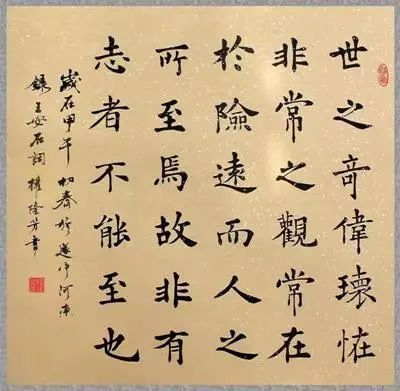 世之奇偉瓌恠
非常之觀常在
於險遠而人之
所至焉故非有
志者不能至也
歲在甲午初春於
錄王安石詞權隆芳書